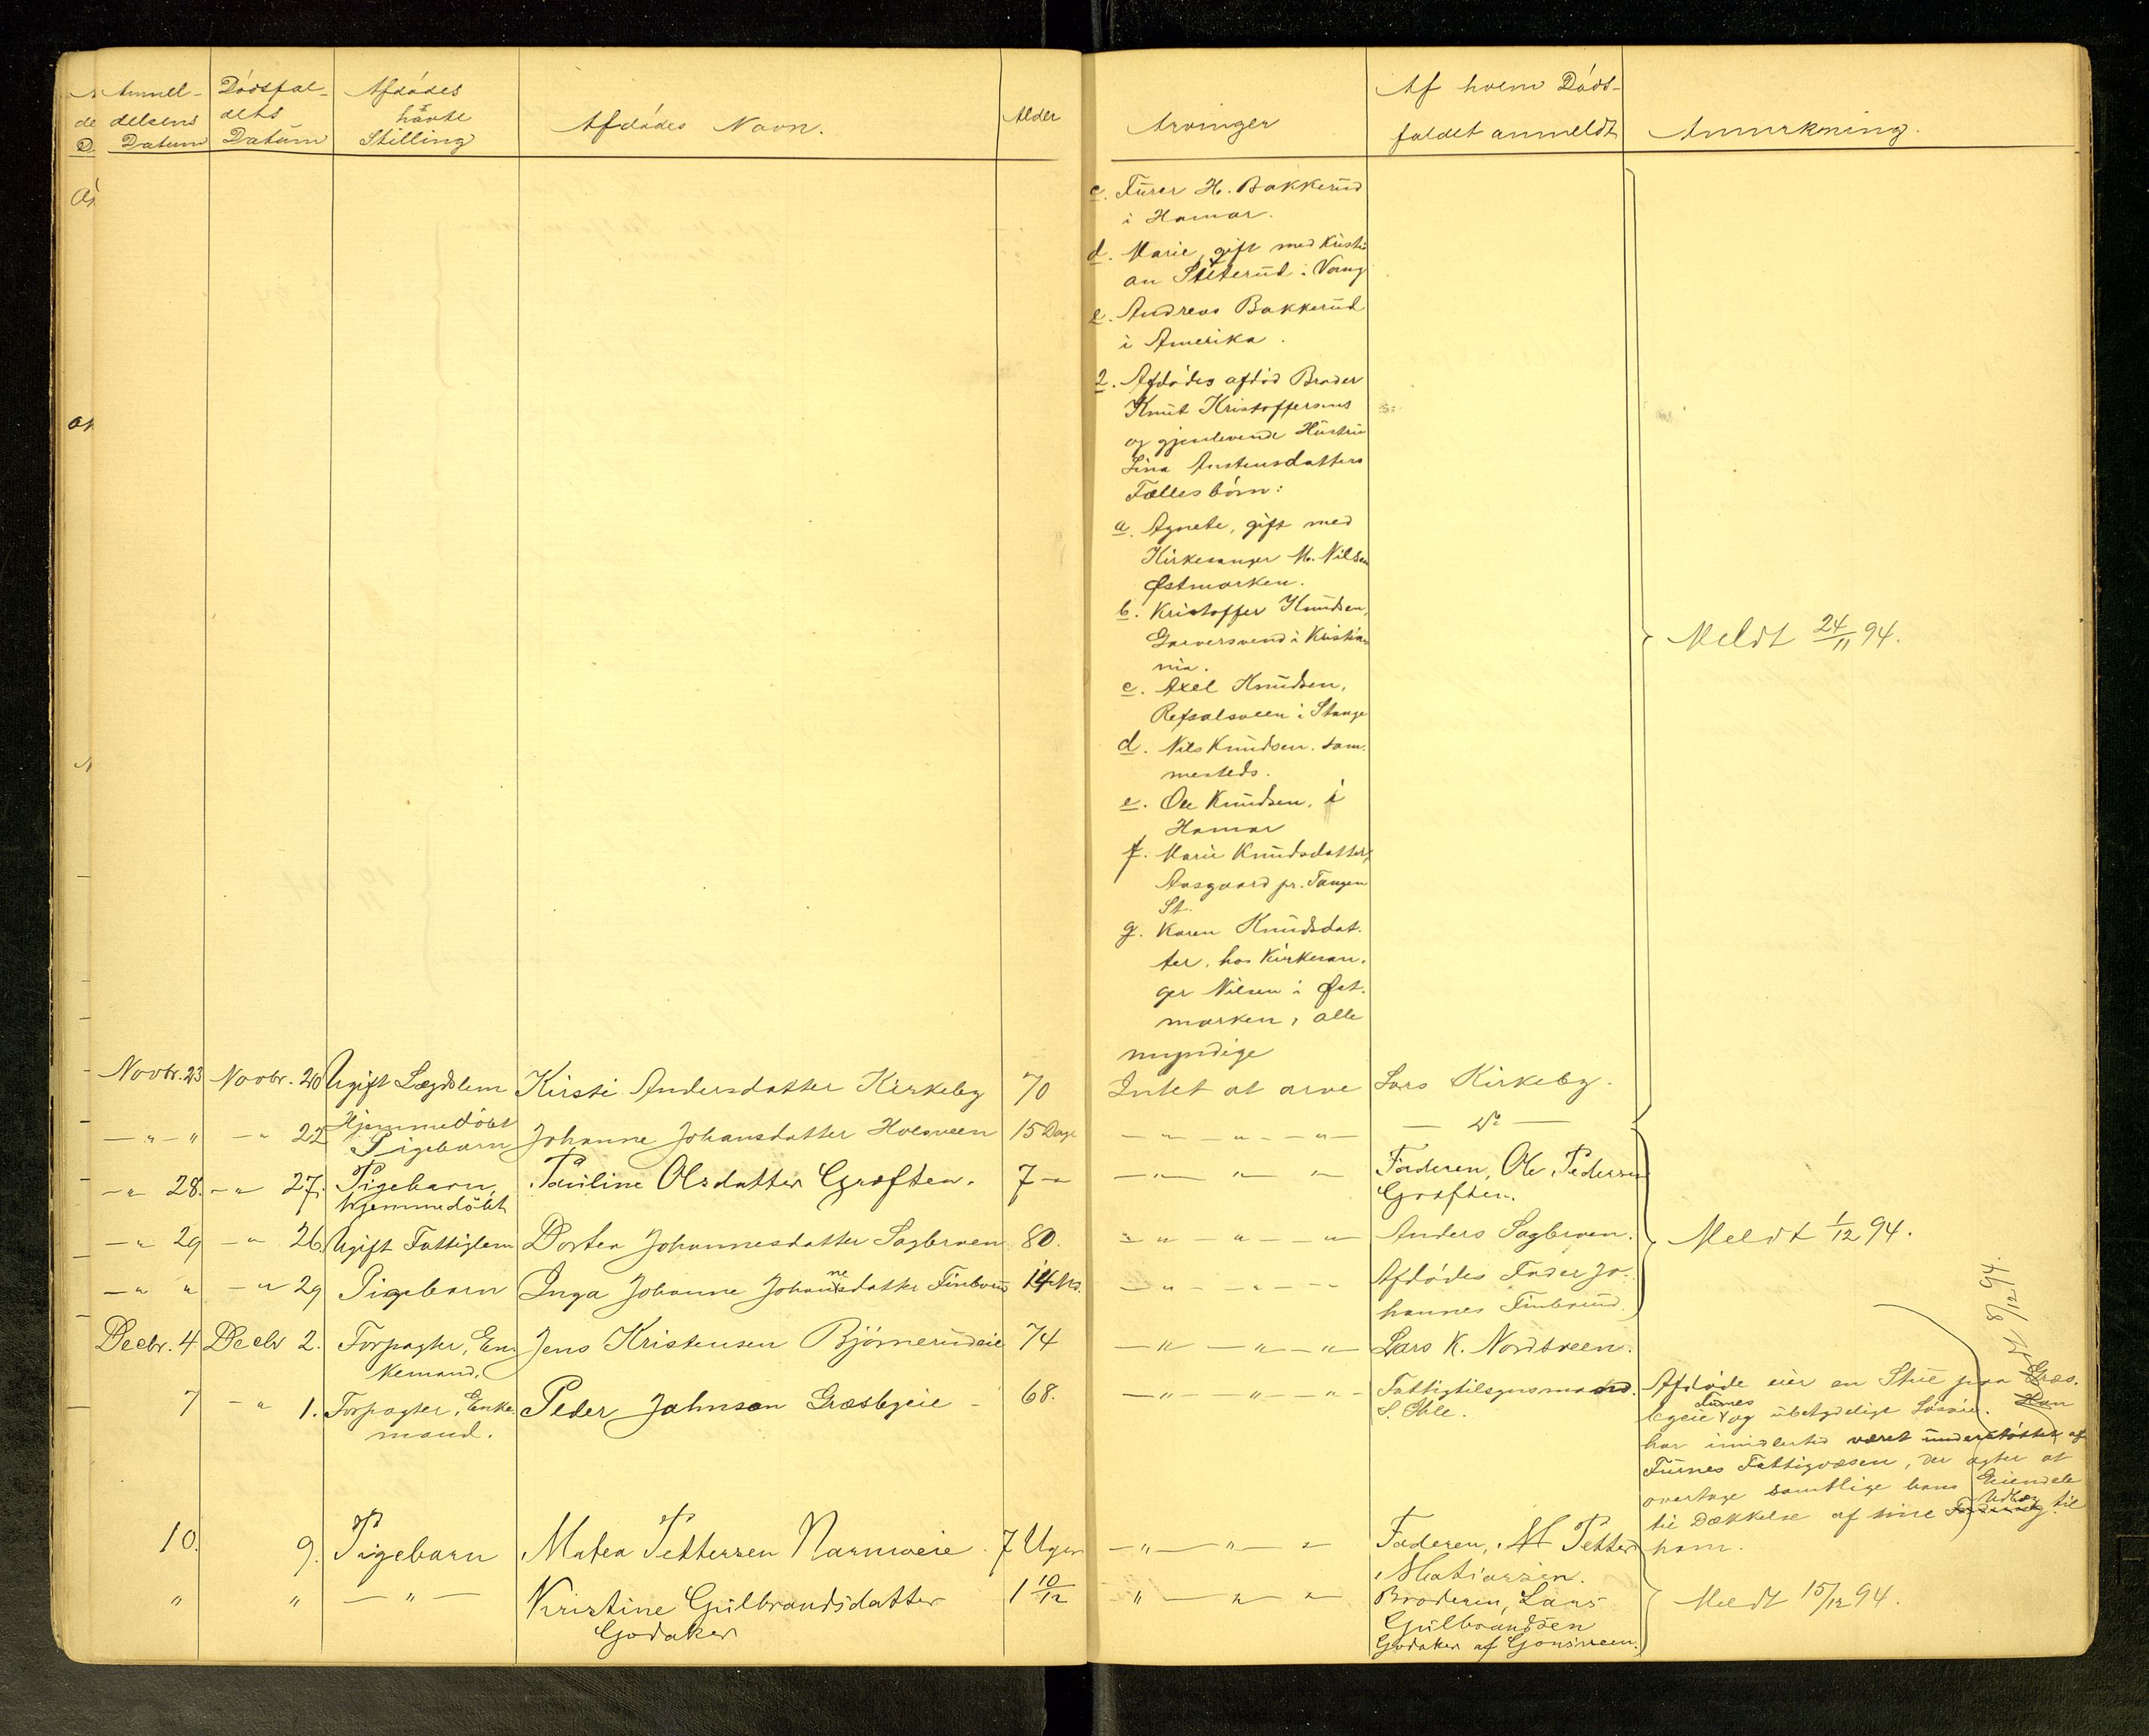 Anmel- Dødsfal- Afdødes
delsens dets havte Afdødes Navn. Alder
Datum Datum Stilling
Arvinger Af hvem Døds- Anmerkning.
faldet anmeldt
c. Furer H. Bakkerud
i Hamar.
d. Marie, gift med Kristi
an i Vang
e. Andreas Bakkerud
i Amerika.
2. Afdødes afdød Broder
Knut Kristoffersens
og gjenlevende Hustru
Lina Austensdatters
Fællesbörn:
a. Agnete, gift med
Kirkesanger M. Nilsen
Østmarken.
b. Kristoffer Knudsen,
Garversvend i Kristia
nia.
c. Axel Knudsen,
Refsalsveen i Stange
d. Nils Knudsen. sam-
mesteds.
e. Ole Knudsen, i
Hamar
f. Marie Knudsdatter,
Aasgaard pr. Tangen
St.
g. Karen Knudsdat-
ter, hos Kirkesan-
ger Nilsen i Øst-
marken, alle
myndige
Meldt 24/11 94.
Novbr. 23 Novbr. 20 Ugift Lægdslem Kirsti Andersdatter Kirkeby 70 Intet at arve Lars Kirkeby.
— " — " — " 22 Hjemmedöbt Pigebarn Johanne Johansdatter Holsveen 15 Dage — " — " — " — — Do —
— " 28. — " 27. Pigebarn, Pauline Olsdatter Grøften. 7 — " — " — " — " Faderen, Ole Pedersen
hjemmedöbt Grøften.
— " 29 — " 26. Ugift Fattiglem Dortea Johannesdatter Sagbraaten 80. — " — " — " — Anders Sagbraaten. Meldt 1/12 94.
— " " — " 29 Pigebarn Inga Johanne Johannesdatter Finbrud 14 Md. — " — " — " Afdødes Fader Jo-
hannes Finbrud.
Decbr. 4 Decbr 2. Forpagter, En- Jens Kristensen Bjørnerudeie 74 — " — " — " — Lars K. Nordsveen.
kemand,
7 — " 1. Forpagter, Enke- Peder Johnson Græsbyeie 68. — " — " — " — Fattigtilsynsmand.
mand. S. Ihle.
Afdøde eier en Stue paa Græs-
byeie Furnes og ubetydelige Løsøre. Han
har imidlertid været understøttet af
Furnes Fattigvæsen, der agter at
overtage samtlige hans Eiendele
til Dækkelse af sine Udlæg til
ham.
Meldt 8/12 94.
10. 9. Pigebarn Matea Pettersen Narmoeie. 7 Uger — " — " — " Faderen, M Petter
Matiassen.
" " — " — Kristine Gulbrandsdatter 1 10/12 " — " — " Broderen, Lars
Godaker Gulbrandsen
Godaker af
Meldt 15/12 94.